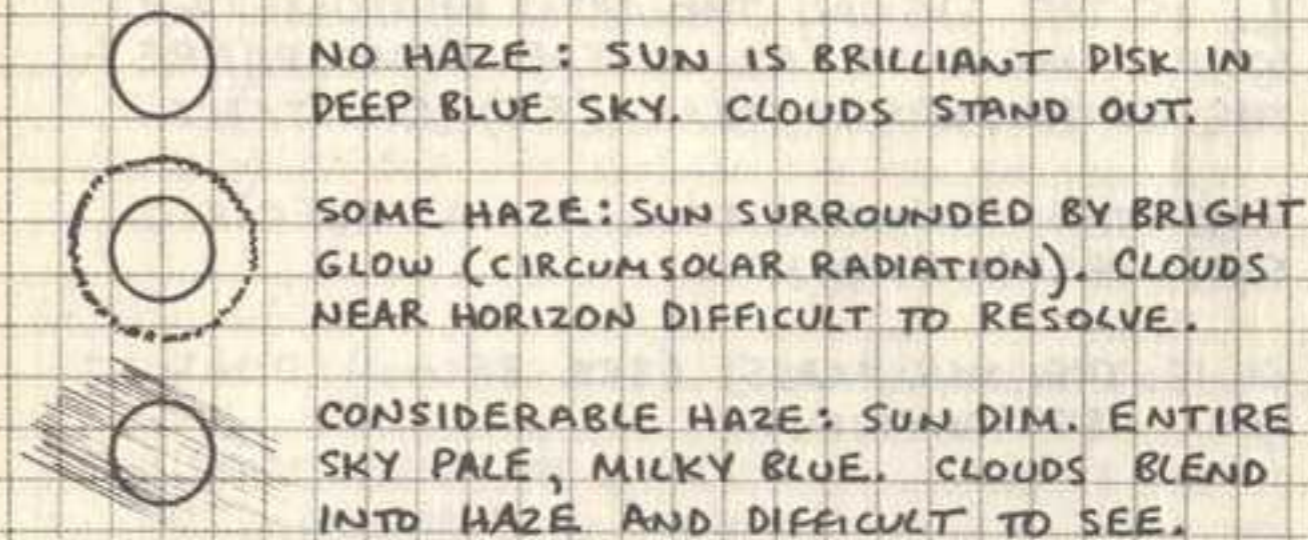 NO HAZE: SUN IS BRILLIANT DISK IN
DEEP BLUE SKY. CLOUDS STAND OUT.
SOME HAZE: SUN SURROUNDED BY BRIGHT
GLOW (CIRCUMSOLAR RADIATION). CLOUDS
NEAR HORIZON DIFFICULT TO RESOLVE.
CONSIDERABLE HAZE: SUN DIM. ENTIRE
SKY PALE, MILKY BLUE. CLOUDS BLEND
INTO HAZE AND DIFFICULT TO SEE.